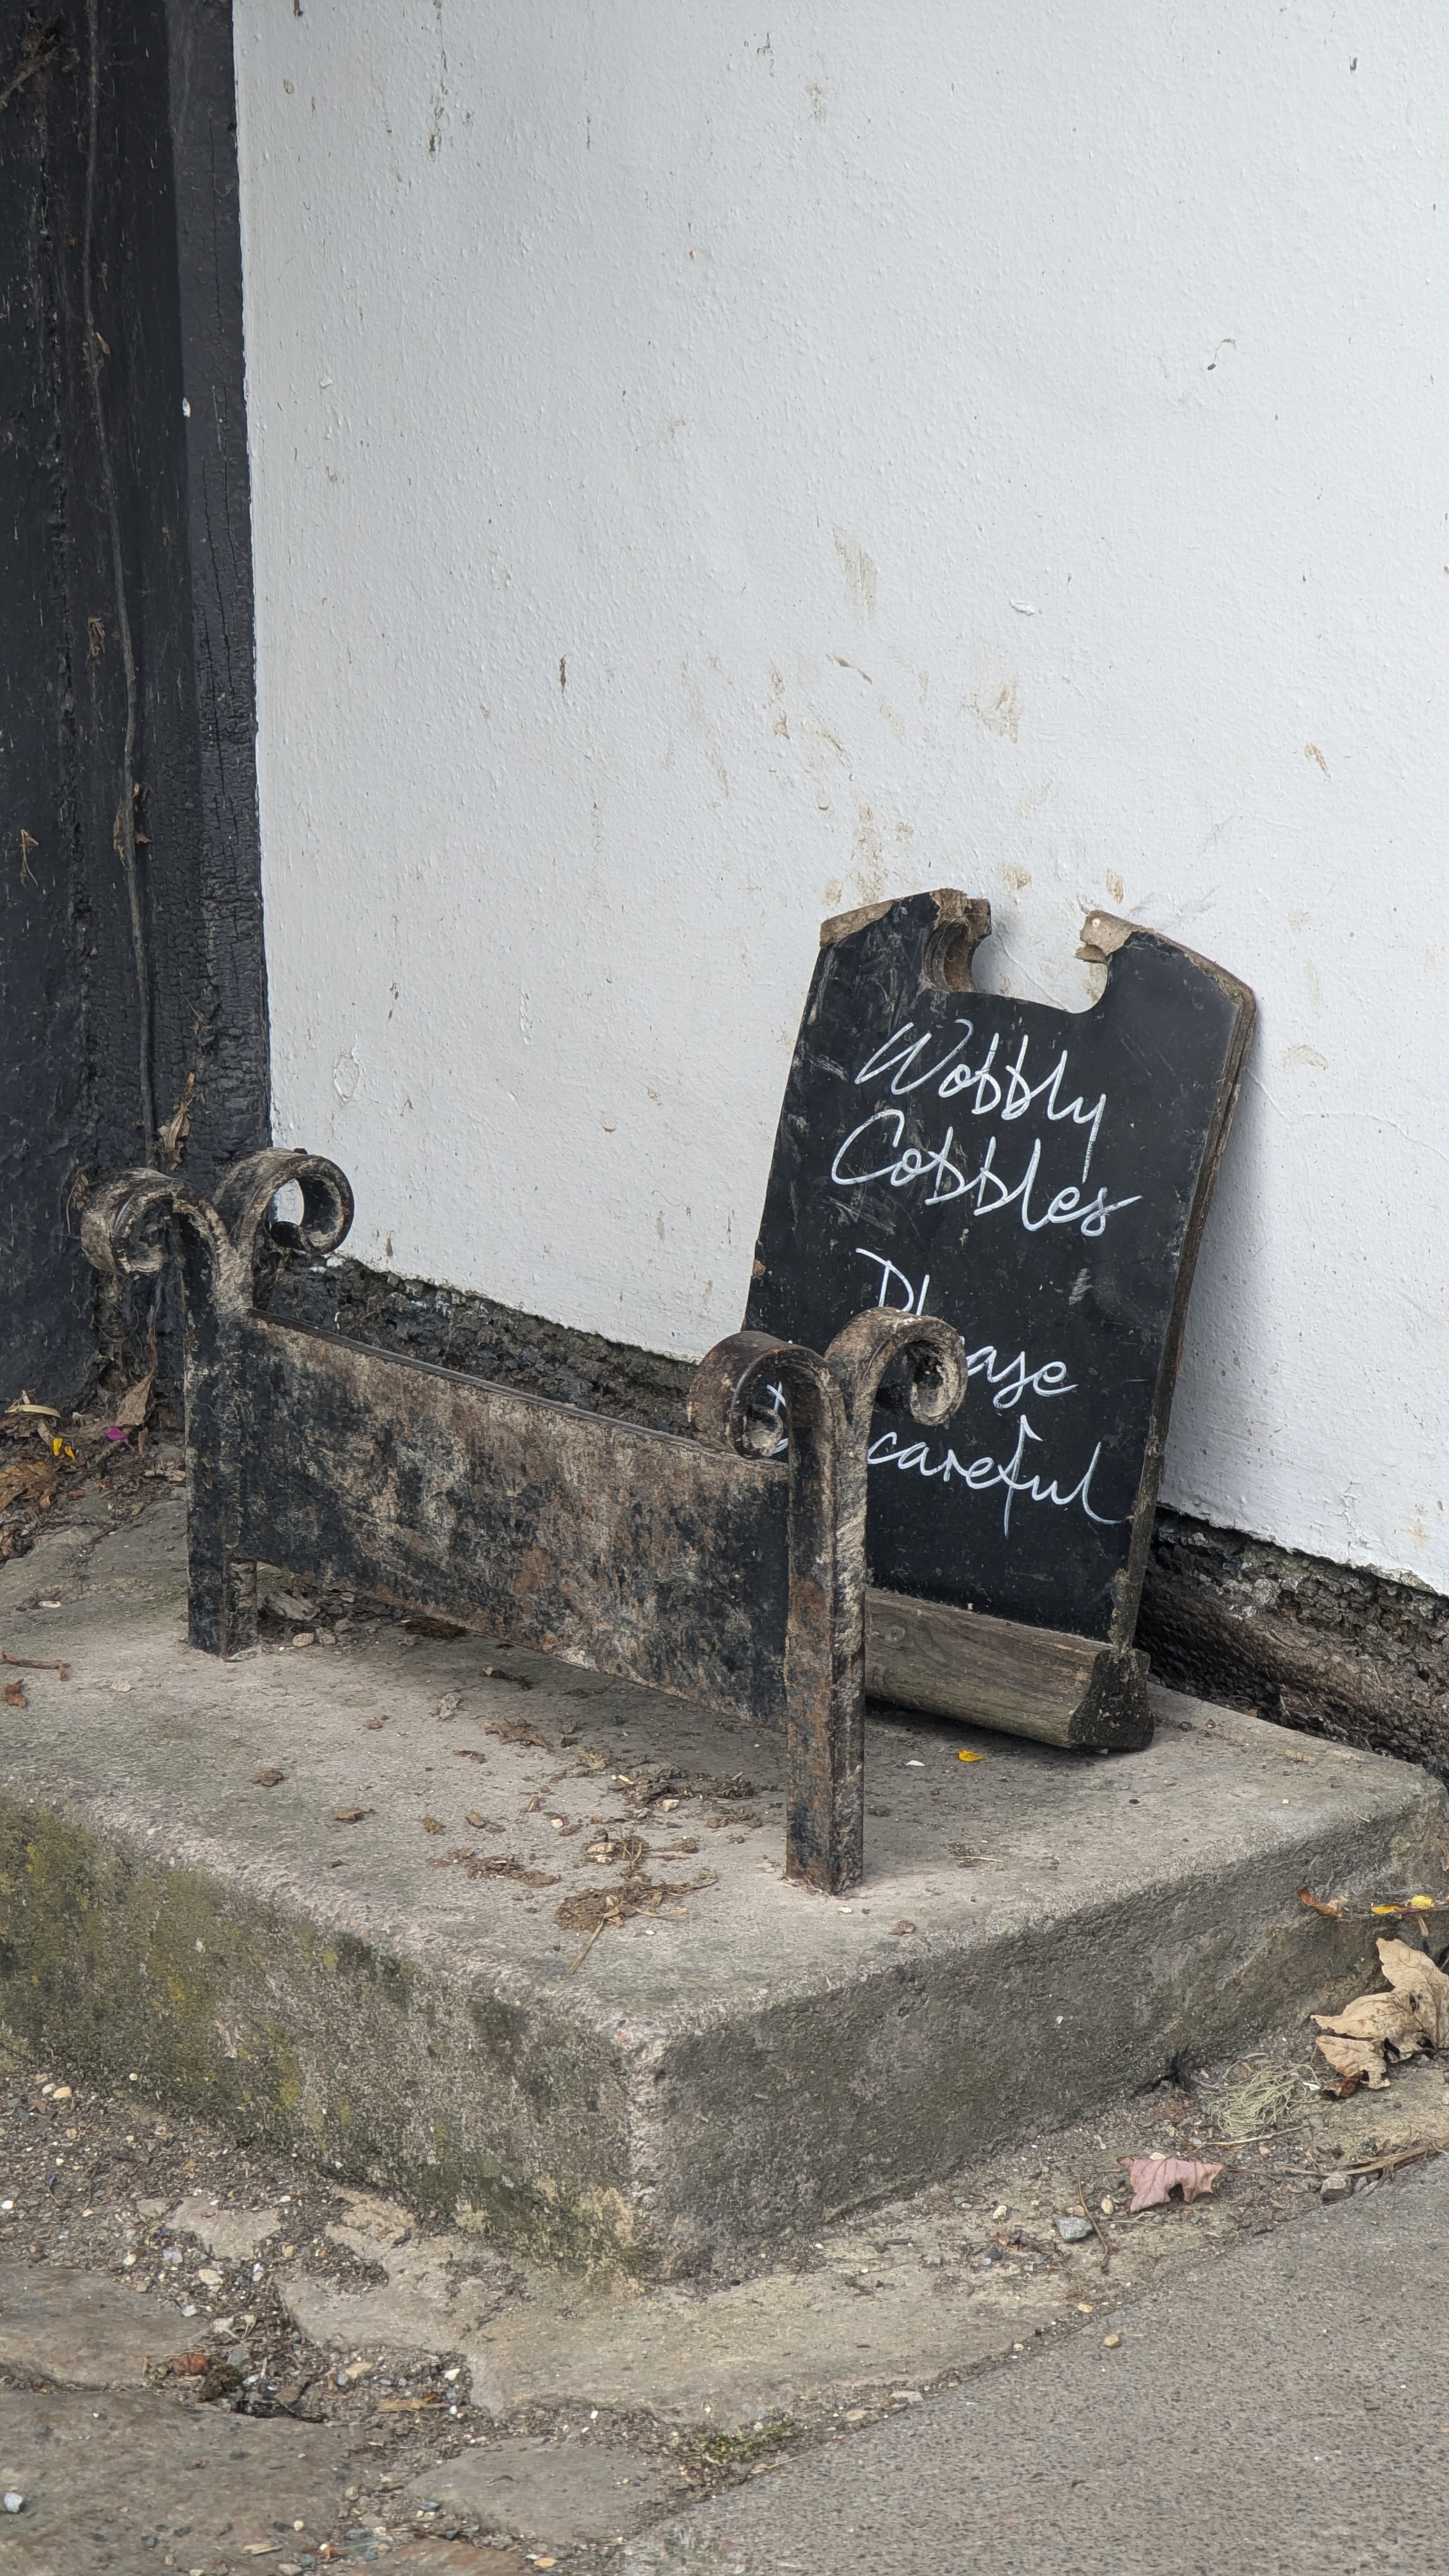 Wobbly
Cobbles
Please
careful